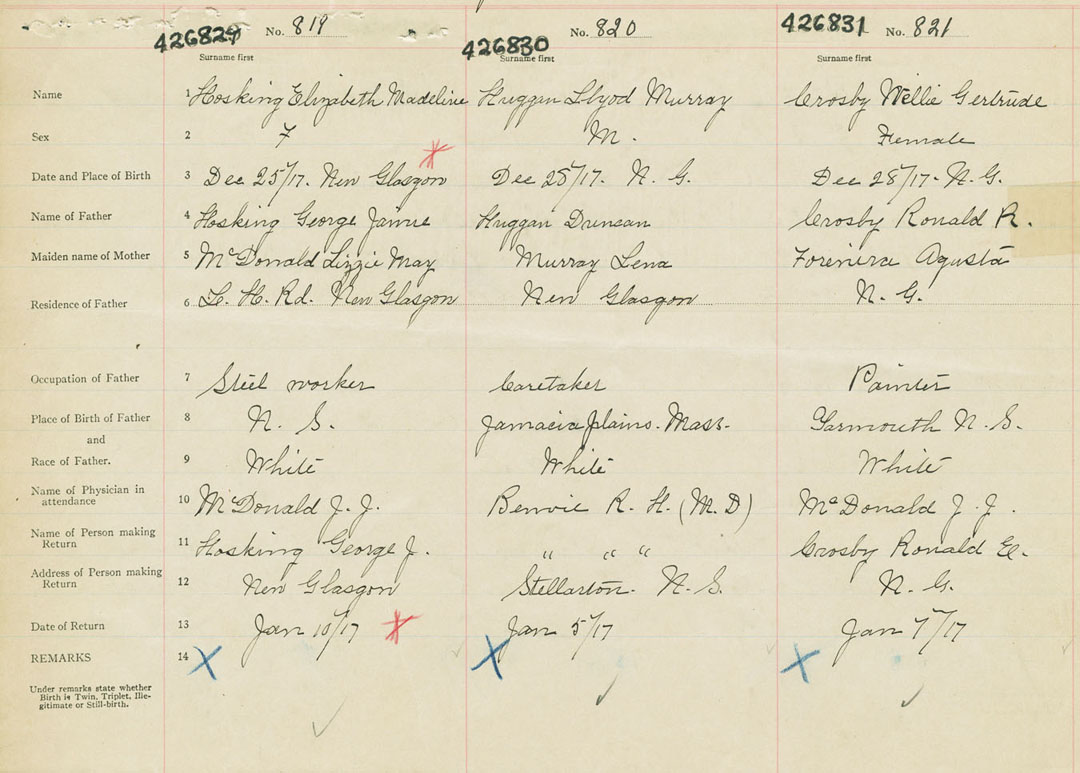 426829 No. 819 426830 No. 820 426831 No. 821
Surname first Surname first Surname first
Name 1 Hosking Elizabeth Madeline Huggan Llyod Murray Crosby Nellie Gertrude
Sex 2 F M. Female
Date and Place of Birth 3 Dec 25/17. New Glasgow Dec 25/17. N. G. Dec 28/17. N. G.
Name of Father 4 Hosking George Jamie Huggan Duncan Crosby Ronald R.
Maiden name of Mother 5 McDonald Lizzie May Murray Lena Agusta
Residence of Father 6 Rd. New Glasgow New Glasgow N. G.
Occupation of Father 7 Steel worker Caretaker Painter
Place of Birth of Father 8 N. S. Jamacia plains. Mass. Yarmouth N. S.
and
Race of Father. 9 White White White
Name of Physician in
attendance 10 McDonald J. J. Benvie R. H. (M. D) McDonald J. J.
Name of Person making
Return 11 Hosking George J. " " " Crosby Ronald
Address of Person making
Return 12 New Glasgow Stellarton. N. S. N. G.
Date of Return 13 Jan 10/17 Jan 5/17 Jan 7/17
REMARKS 14
Under remarks state whether
Birth is Twin, Triplet, Ille-
gitimate or Still-birth.